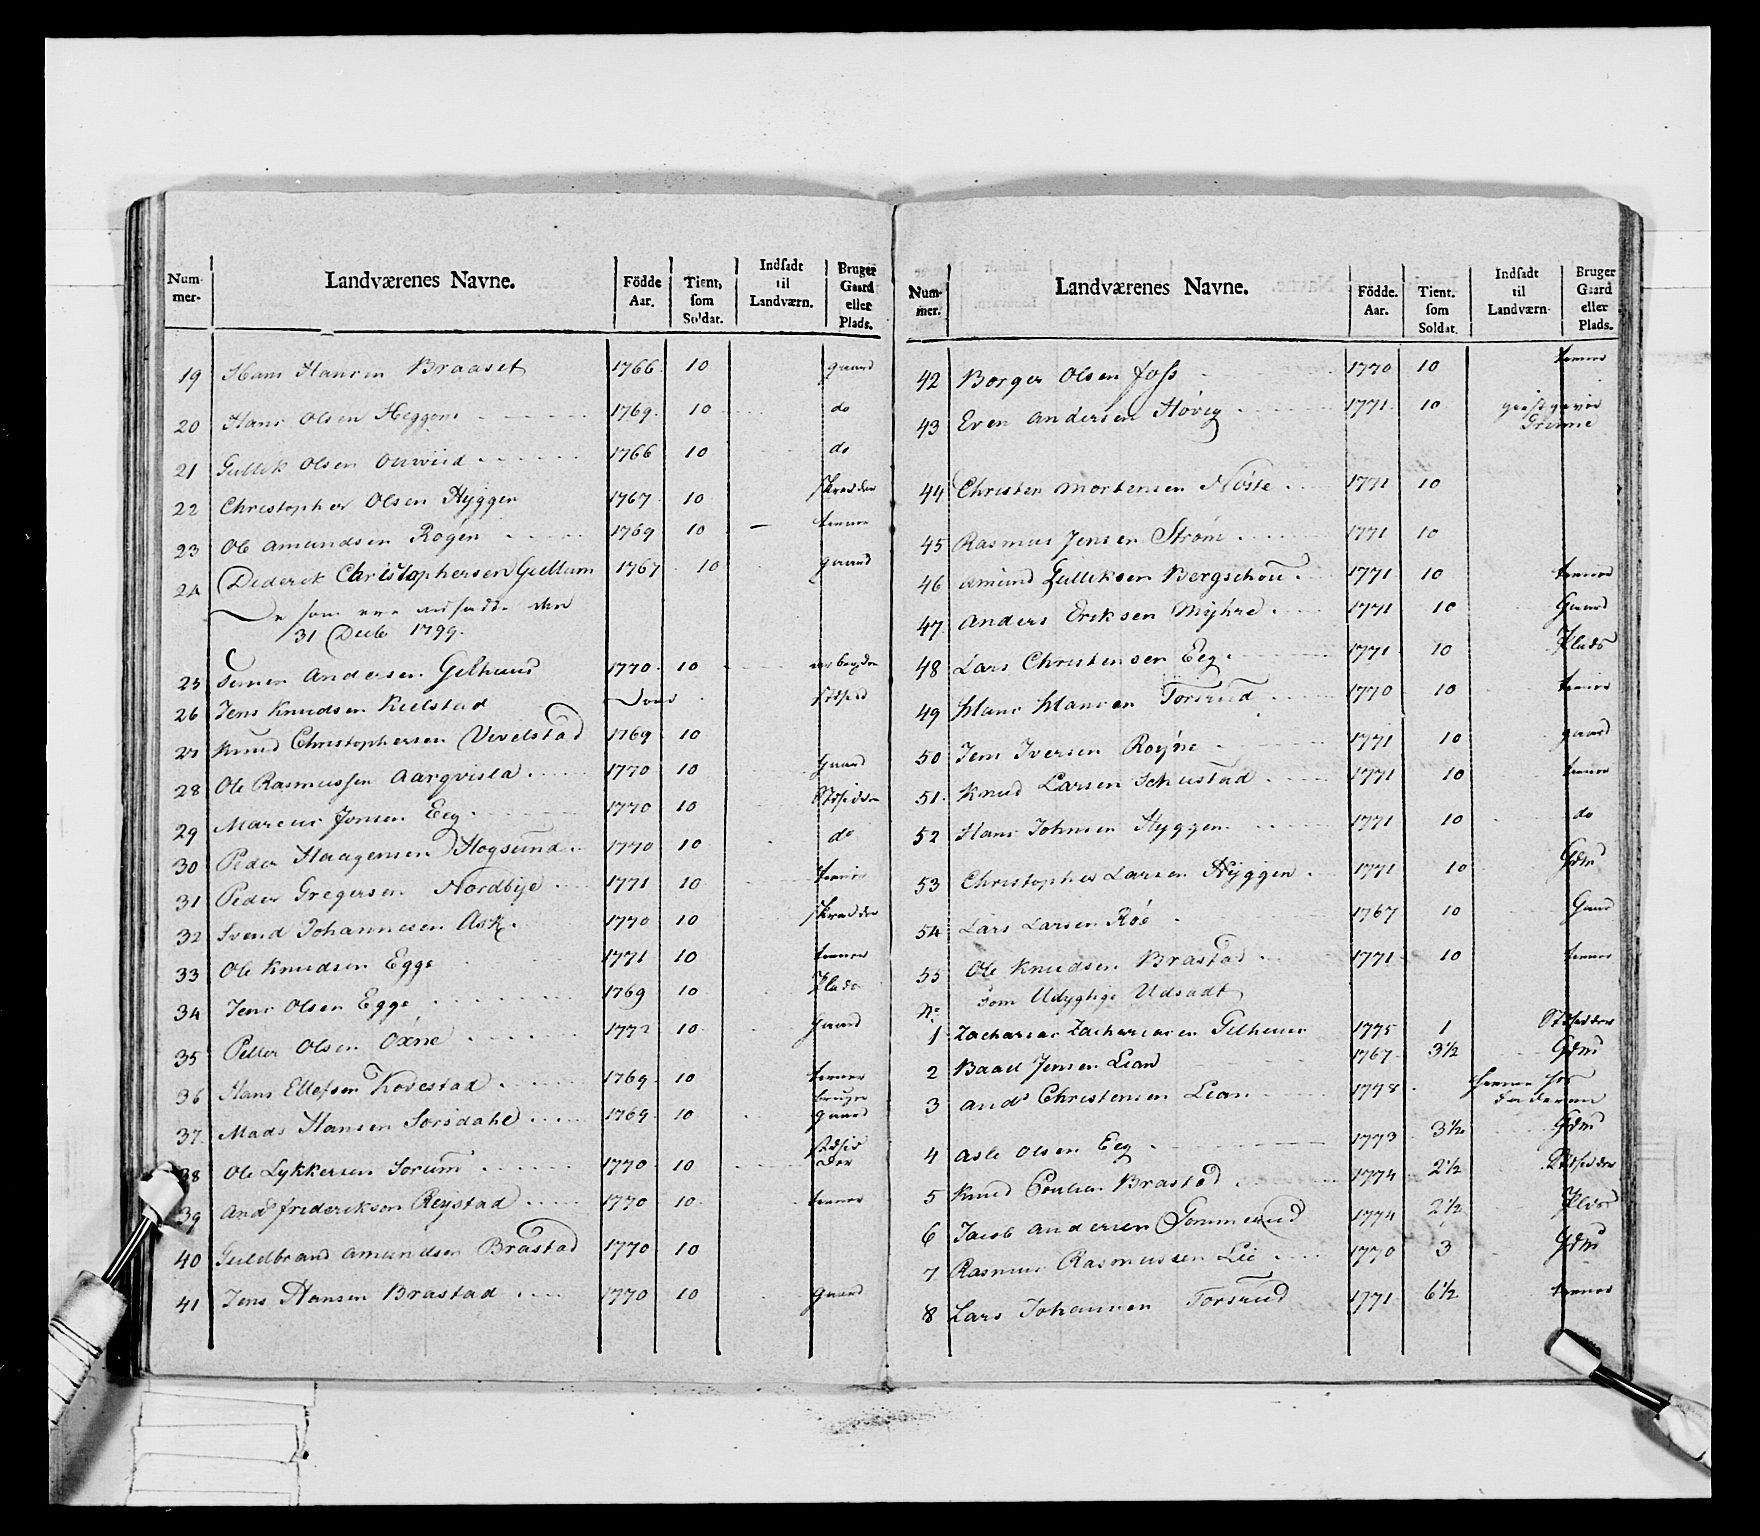 Num-
mer-
Landværenes Navne.
Födde
Aar.
Tient,
som
Soldat.
Indsadt
til
Landværn.
Bruger
Gaard
eller
Plads.
19 Hans Hansen Braaset 1766 10 gaard
20 Hans Olsen Heggom 1769 10 do
21 Gullik Olsen 1766 10 do
22 Christopher Olsen Hyggen 1767 10 skredder
23 Ole Amundsen Rogen 1769 10 - tienner
24 Diderik Christophersen Gullum 1767 10 gaard
som ere udsadte den
31 Decbr 1799.
25 Simen Andersen Gilhuus 1770 10
26 Jens Knudsen Kielstad
27 Knud Christophersen Vivelstad 1769 10
28 Ole Rasmussen Aarqvisla 1770 10 Gaard
29 Marcus Jonsen Eeg 1770 10 Stdsidder
30 Peder Haagensen Hogsund 1770 10 do
31 Peder Gregersen Nordbye 1771 10 tienner
32 Svend Johannesen Ask 1770 10 skredder
33 Ole Knudsen Egge 1771 10 tienner
34 Jens Olsen Egge 1769 10 Plads
35 Petter Olsen Oxne 1772 10 gaard
36 Hans Ellefsen Kovestad 1769 10 tienner
37 Mads Hansen Sørsdahl 1769 10 bruger
gaard
38 Ole Lykkersen Sorum 1770 10 stdsid
der
39 And: frideriksen Reistad 1770 10 tienner
40 Guldbrand Amundsen Brastad 1770 10
41 Jens Hansen Brastad 1770 10 gaard
Num-
mer.
Landværenes Navne.
Födde.
Aar.
Tient.
som
Soldat.
Indsadt
til
Landværn-
Bruger
Gaard
eller
Plads.
42 Borger Olsen foss 1770 10 tienner
43 Even Andersen Høvig 1771 10 giestgiver
44 Christen Mortensen Nøste 1771 10
45 Rasmus Jensen Strøm 1771 10
46 Amund Gulliksen Bergschou 1771 10 tienner
47 Anders Eriksen Myhre 1771 10 Gaard
48 Lars Christensen Eeg 1771 10 Plads
49 Hans Hansen Torsrud 1770 10 tienner
50 Jens Iversen Royne 1771 10 gaard
51 Knud Larsen Schustad 1771 10 tienner
52 Hans Johnsen Hyggen 1771 10 do
53 Christopher Larsen Hyggen 1771 10 Gdm
54 Lars Larsen Röe 1767 10 Gaard
55 Ole Knudsen Brastad 1771 10 tienner
No som Udygtige Udsadt
1 Zacharias Zachariasen Gilhuus 1775 1 Stdsidder
2 Baard Jensen Lian 1767 3½ Gdm
3 And: Christensen Lian 1778 tienner hos
faderen
4 Asle Olsen Eeg 1773 3½ Gdm
5 Knud Poulsen Brastad 1774 2½ Stdsidder
6 Jacob Andersen Gommerud 1774 2½ Plds
7 Rasmus Rasmussen Lie 1770 3 Gdm
8 Lars Johannsen Torsrud 1771 6½ tienner